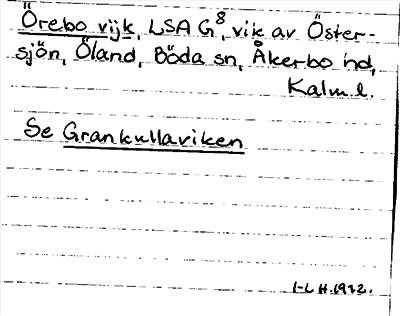 Örebo vijk, LSA G⁸, vik av Öster-
sjön, Öland, Böda sn, Åkerbo hd,
Kalm.l.
Se Grankullaviken
I-L H.1972.